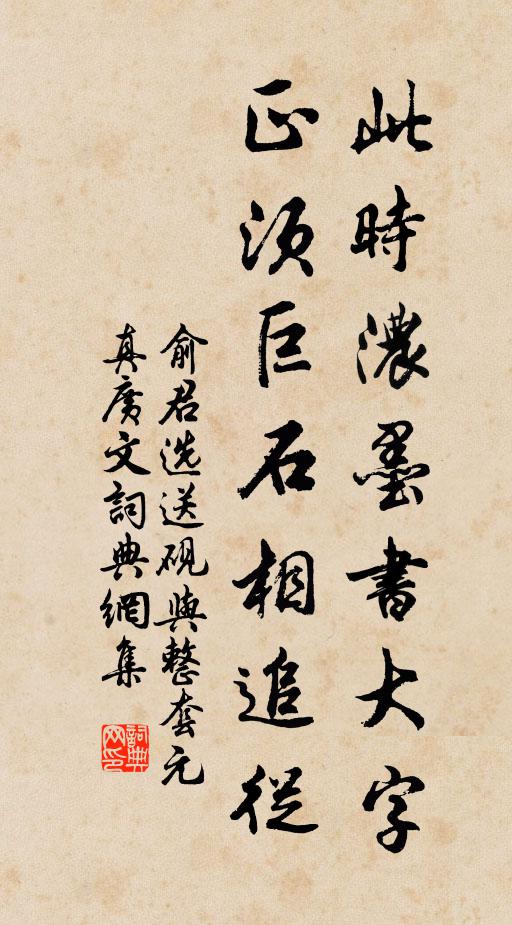 此時濃墨書大字
正須巨石相追從
俞君选送硯與整套元
真廣文詞典網集
詞典网印